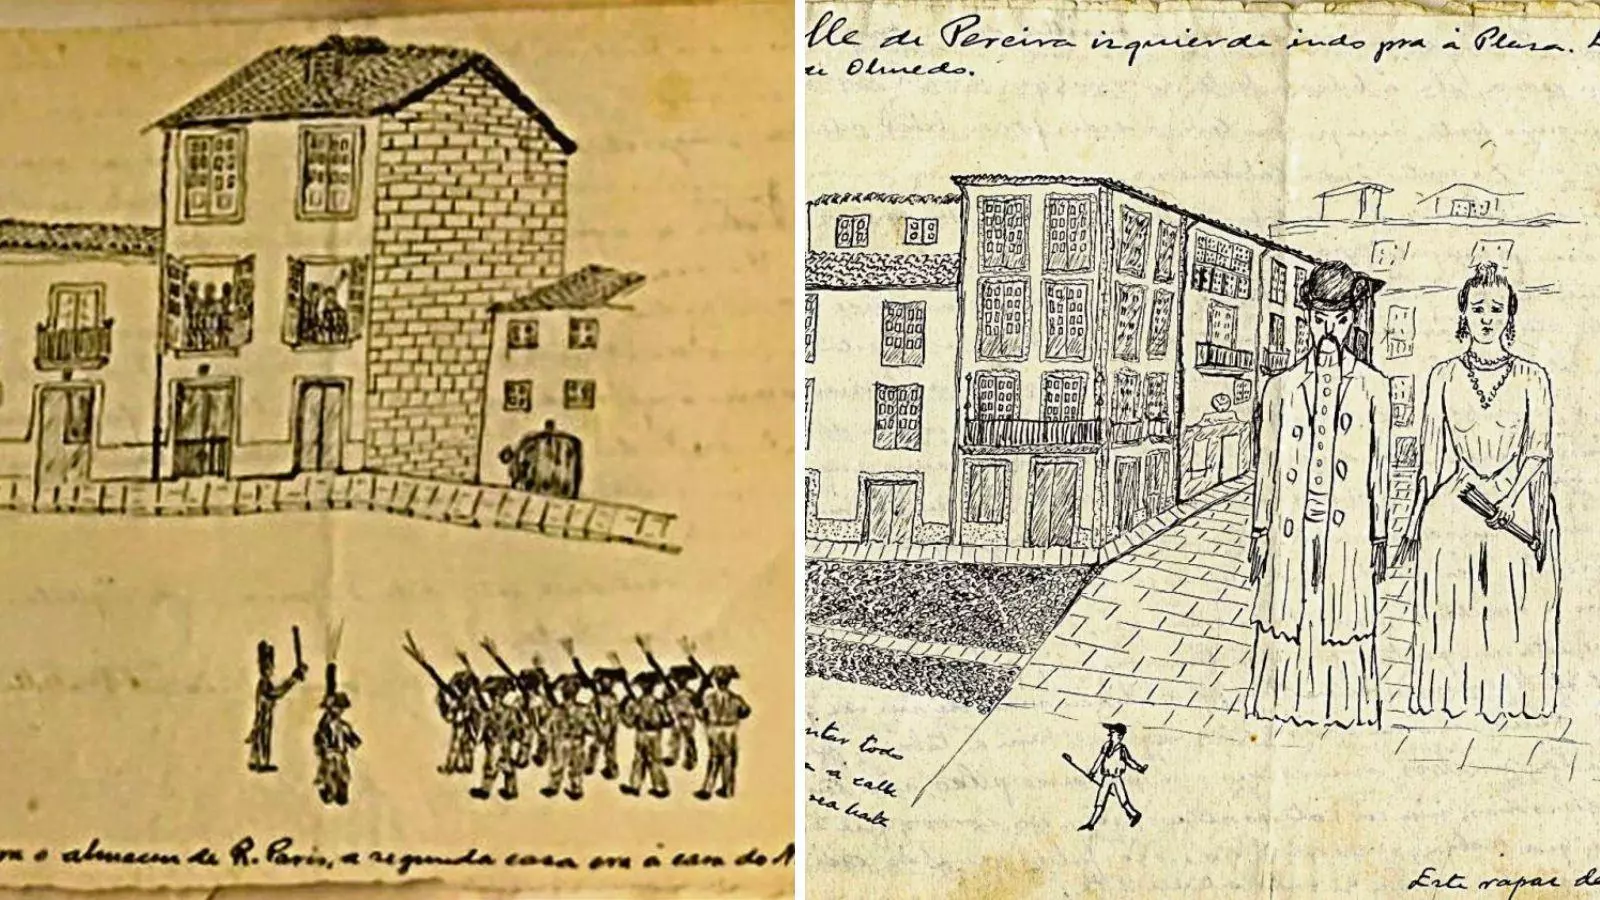 ra o almacen de R. Paris, a segunda casa era á casa do
lle de Pereira izquierda indo pra á Plasa.
Olmedo.
todo
á calle
Este rapaz de